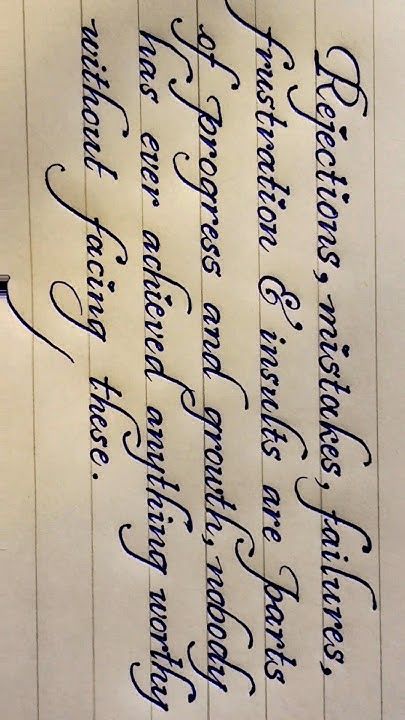 Rejections, mistakes, failures,
frustration & insults are parts
of progress and growth, nobody
has ever achieved anything worthy
without facing these.